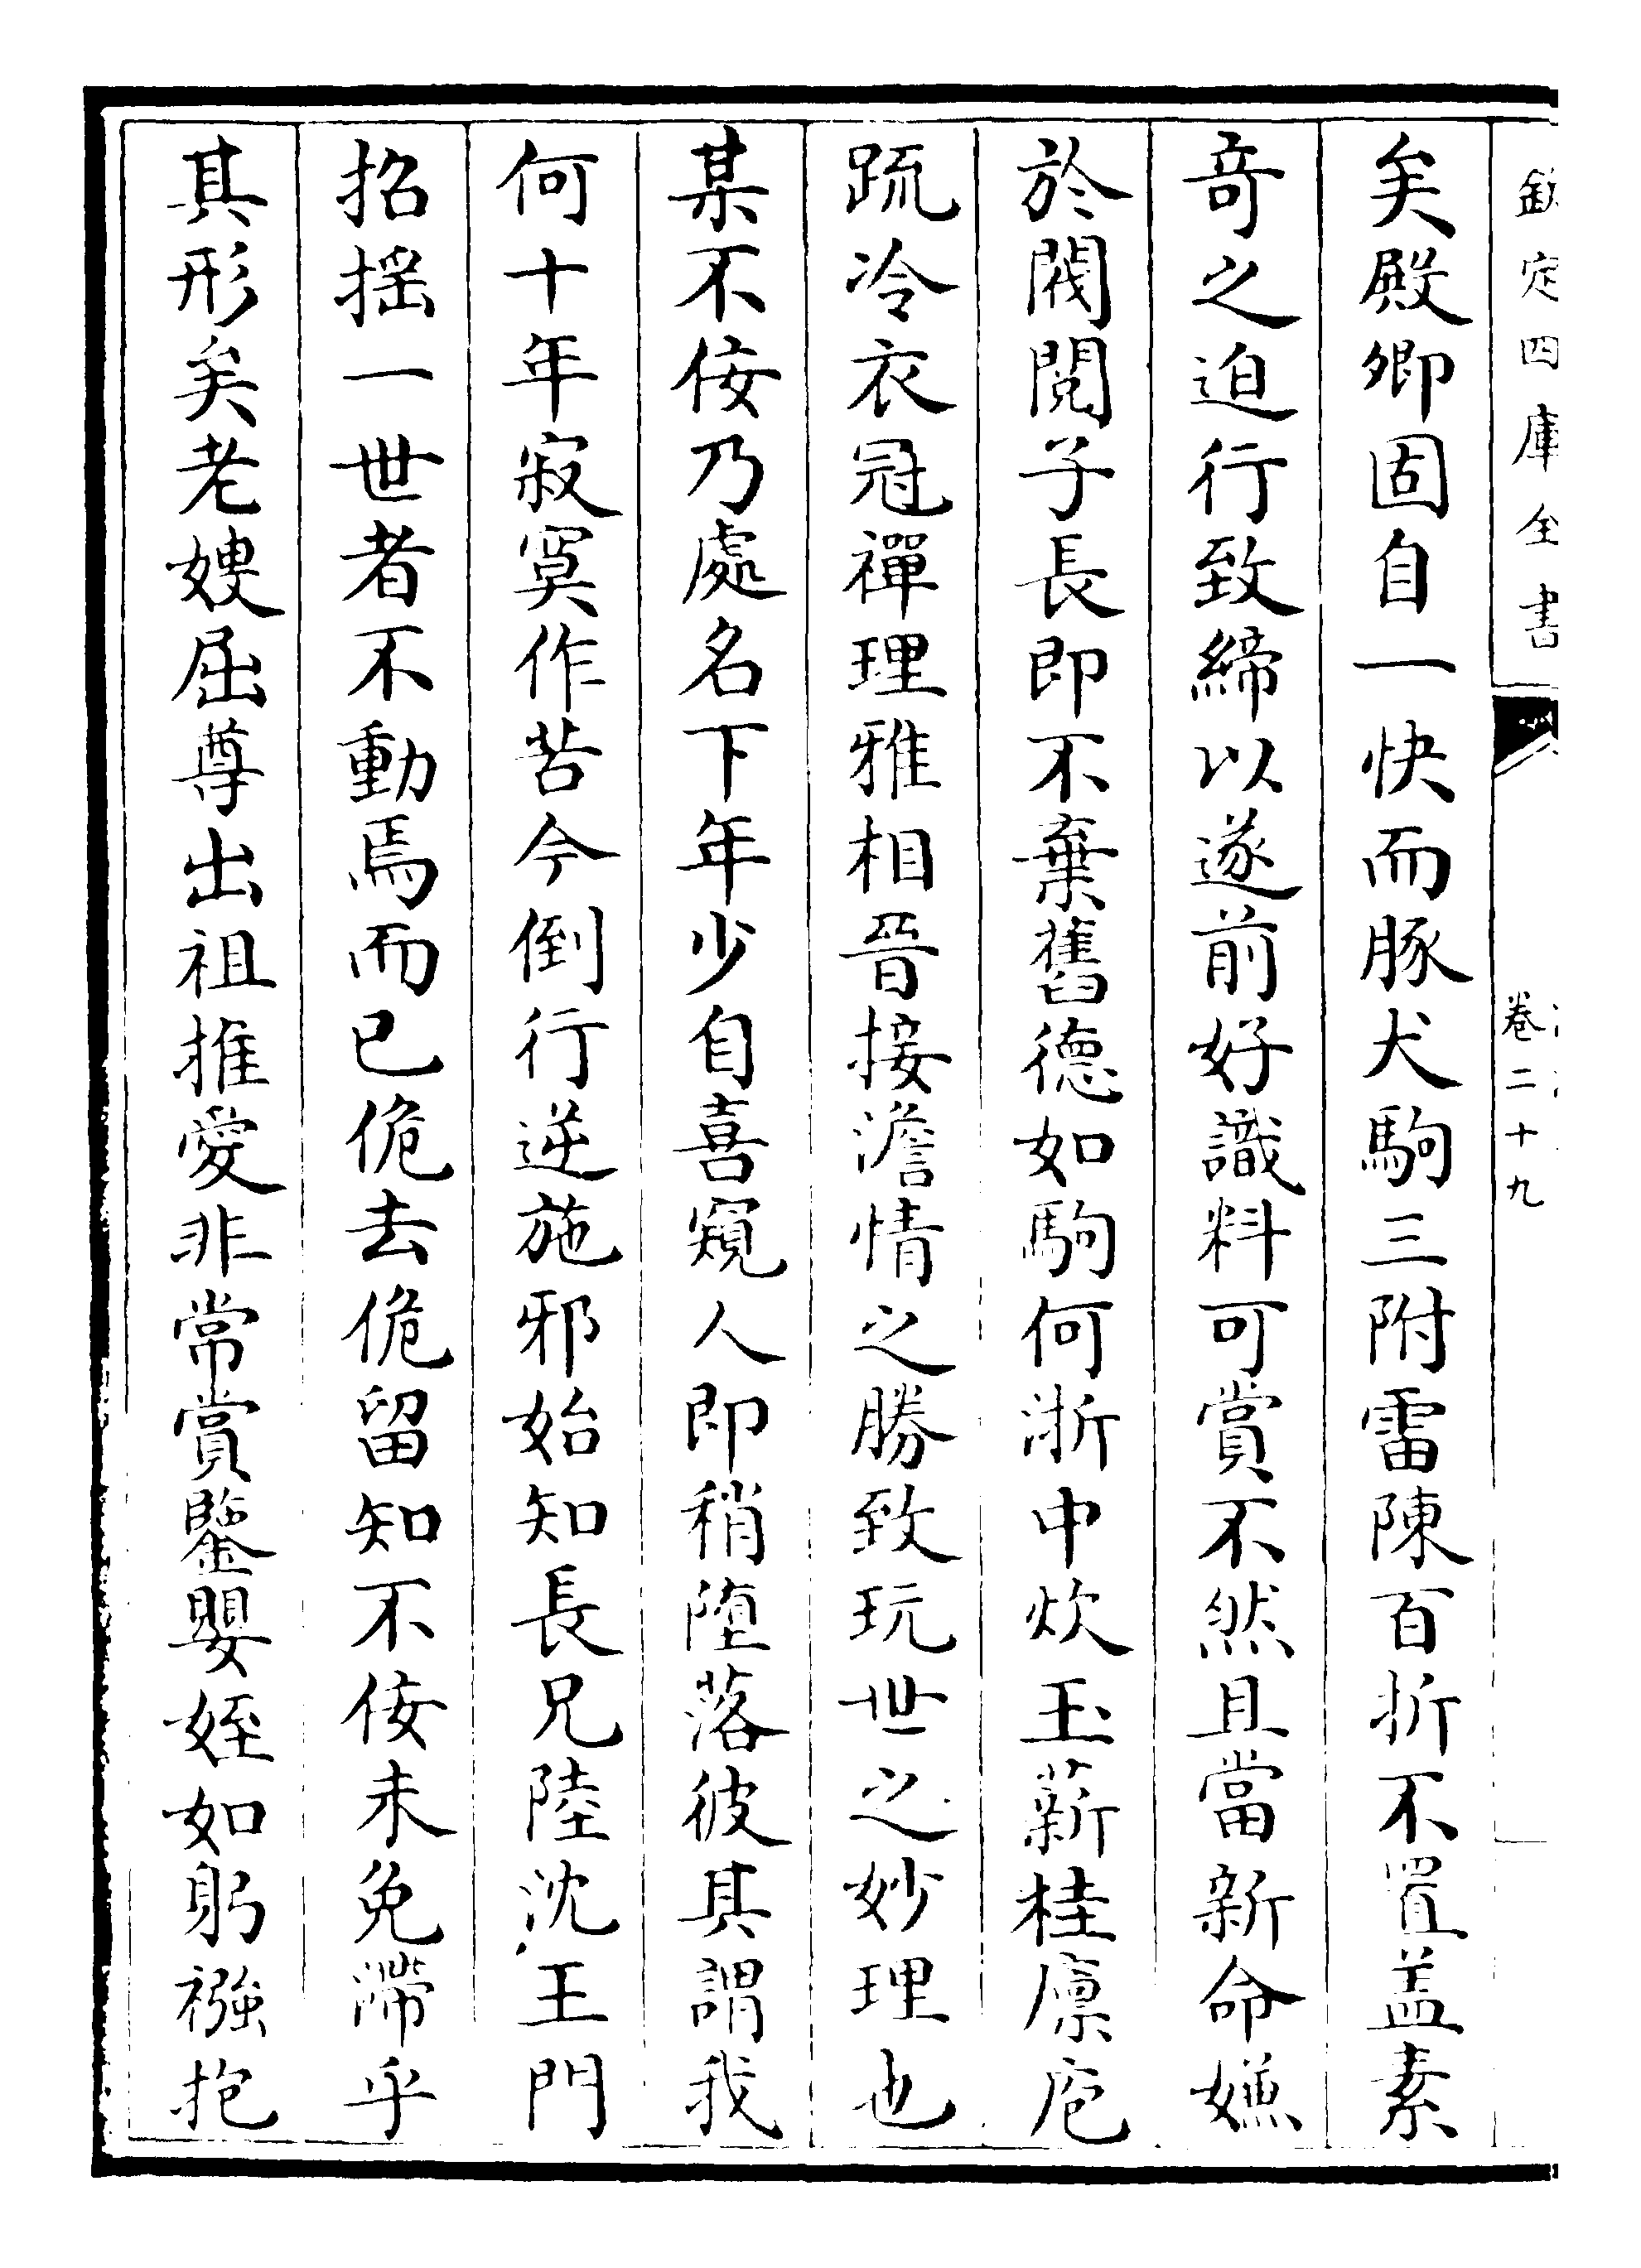 欽定四庫全書
卷二十九
矣殿卿固自一快而豚犬駒三附雷陳百折不置盖素
奇之迫行致締以遂前好識料可賞不然且當新命嫌
於閥閱子長即不棄舊德如駒何浙中炊玉薪桂廪庖
疏冷衣冠禪理雅相晉接澹情之勝致玩世之妙理也
某不佞乃處名下年少自喜窺人即稍墮落彼其謂我
何十年寂寞作苦今倒行逆施邪始知長兄陸沈王門
招揺一世者不動焉而已佹去佹留知不佞未免滯乎
其形矣老嫂屈尊出祖推愛非常賞鑒嬰姪如躬襁抱